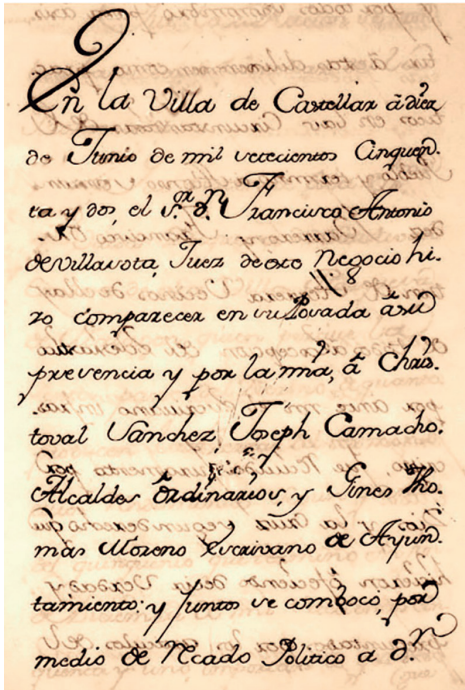 En la Villa de Castellar â diez
de Junio de mil setecientos Cinquen.
ta y dos, el s.or d.n Francisco Antonio
de Villasota, Juez de este Negocio hi-
zo comparecer en su Posada â su
presencia y por la mia, â Chris
toval Sanchez, Joseph Camacho.
Alcaldes Ordinarios, y Gines Tho.
màs Moreno Escrivano de Ayun.
tamiento; y juntos se comboco, por
medio de Recado Politico a d.n